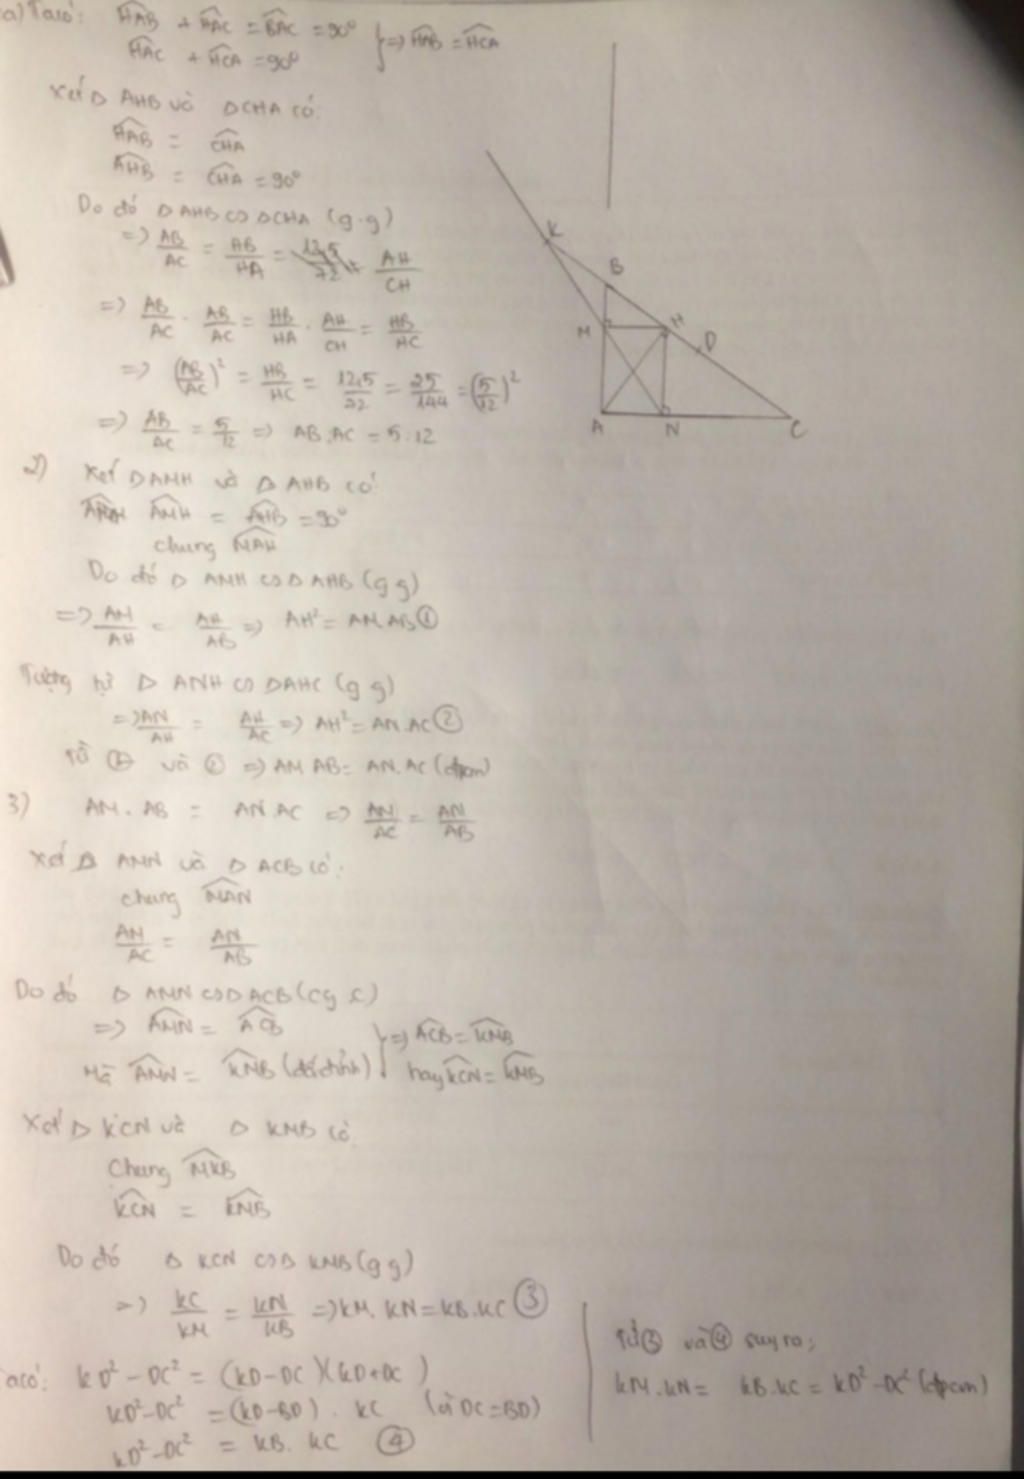 a) Ta có: HAB + HAC = BAC = 90° } => HAB = HCA
HAC + HCA = 90°
Xét Δ AHB và Δ CHA có:
HAB = CHA
AHB = CHA = 90°
Do đó Δ AHB ∽ Δ CHA (g.g)
=> AB/AC = HB/HA = AH/CH
=> AB/AC . AB/AC = HB/HA . AH/CH = HB/HC
=> (AB/AC)² = HB/HC = 12,5/72 = 25/144 = (5/12)²
=> AB/AC = 5/12 => AB:AC = 5:12
2) Xét Δ AMH và Δ AHB có:
AMH = AHB = 90°
chung MAH
Do đó Δ AMH ∽ Δ AHB (g g)
=> AM/AH = AH/AB => AH² = AM.AB ①
Tương tự Δ ANH ∽ Δ AHC (g g)
=> AN/AH = AH/AC => AH² = AN.AC ②
Từ ① và ② => AM AB = AN.AC (đpcm)
3) AM . AB = AN.AC => AM/AC = AN/AB
Xét Δ AMN và Δ ACB có:
chung MAN
AM/AC = AN/AB
Do đó Δ AMN ∽ Δ ACB (c g c)
=> AMN = ACB
Mà AMN = KMB (đối đỉnh) } => ACB = KMB
hay KCN = KMB
Xét Δ KCN và Δ KMB có
Chung MKB
KCN = KMB
Do đó Δ KCN ∽ Δ KMB (g g)
=> KC/KM = KN/KB => KM. KN = KB.KC ③
Ta có: KD² - DC² = (KD-DC)(KD+DC)
KD²-DC² = (KD-BD) . KC (vì DC=BD)
KD²-DC² = KB. KC ④
Từ ③ và ④ suy ra:
KM.KN = KB.KC = KD²-DC² (đpcm)
K
B
M
H
D
A
N
C